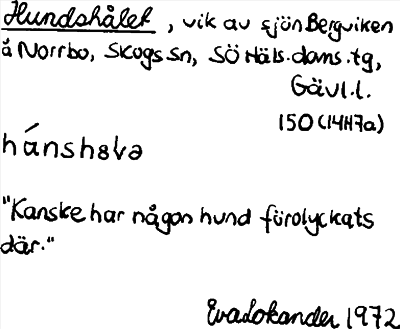 Hundshålet, vik av sjön Bergviken
å Norrbo, Skogs sn, SÖ Häls. doms. tg,
Gävl.l.
150 (14H7a)
"Kanske har någon hund förolyckats
där."
Eva Lokander 1972